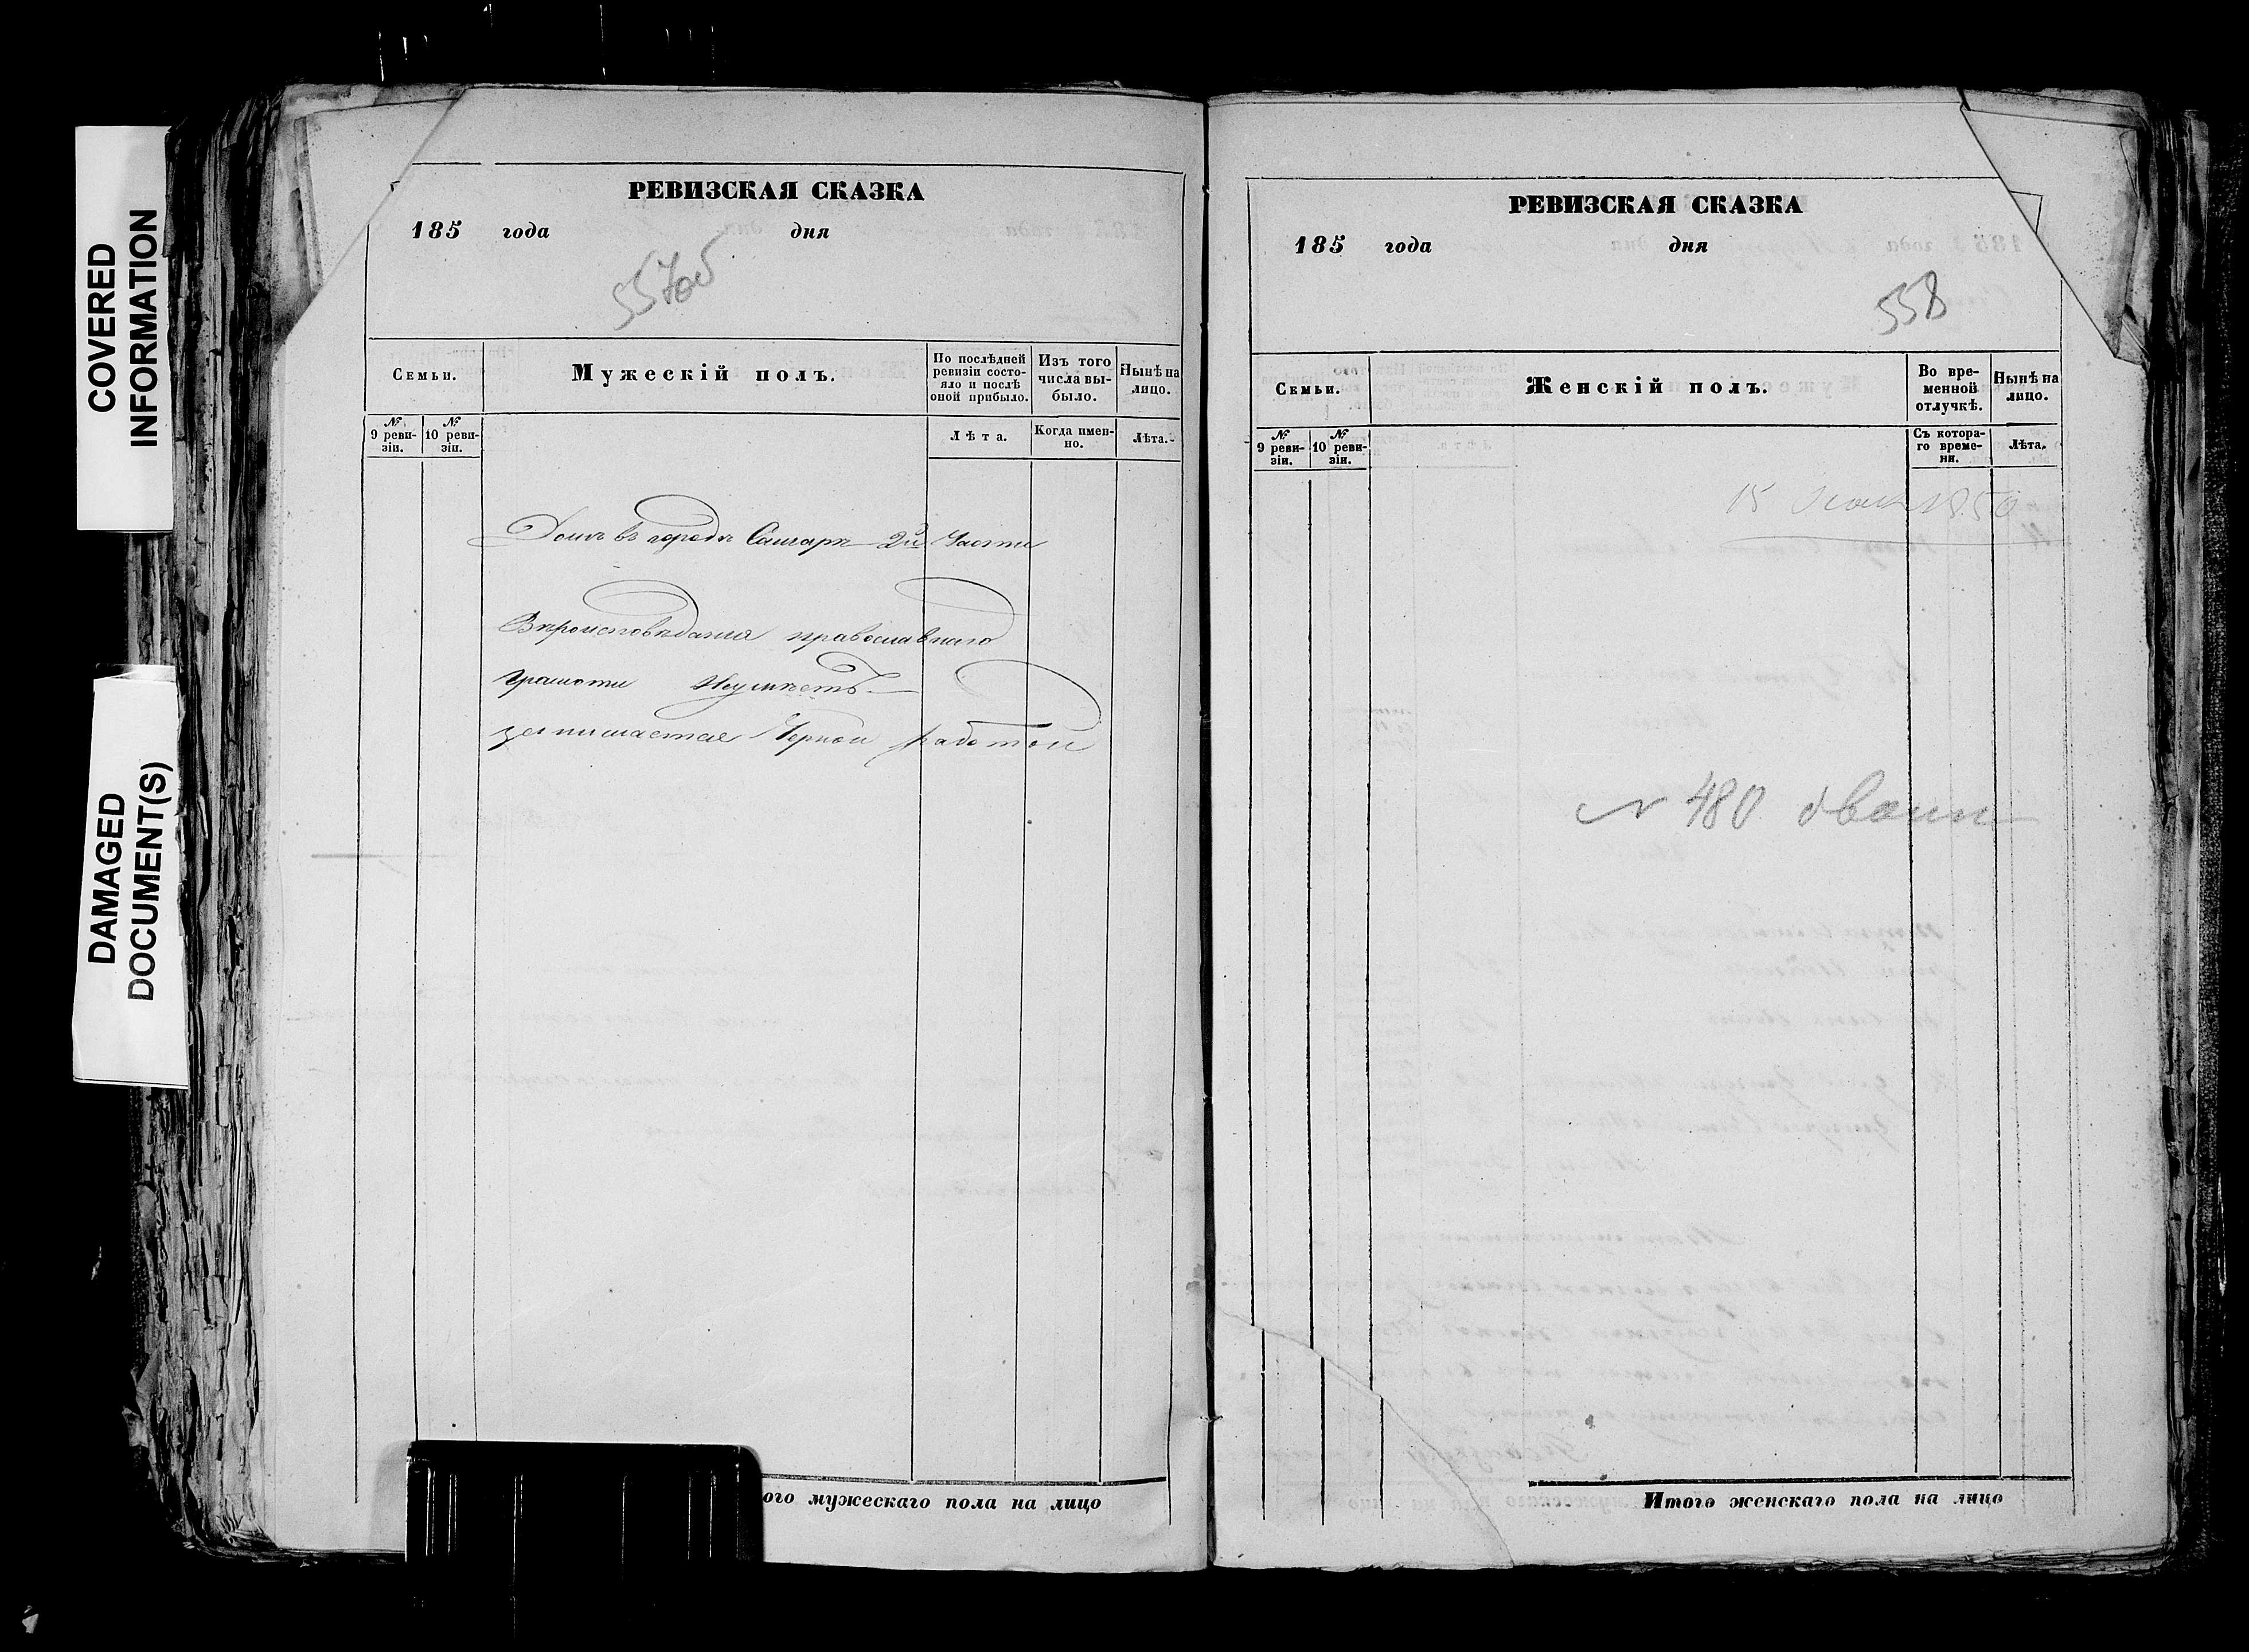 COVERED
INFORMATION
DAMAGED
DOCUMENT(S)
РЕВИЗСКАЯ СКАЗКА
185 года дня
557об
Семьи.
Мужескій полъ.
По послѣдней
ревизіи состо-
яло и послѣ
оной прибыло.
Изъ того
числа вы-
было.
Нынѣ на
лицо.
№
9 реви-
зіи.
№
10 реви-
зіи.
Лѣта.
Когда имен-
но.
Лѣта.
Домъ въ городѣ Самарѣ 2й Части
Вѣроисповѣданія православнаго
грамоти Неумѣетъ
занимается Черной работой
ого мужескаго пола на лицо
РЕВИЗСКАЯ СКАЗКА
185 года дня
558
Семьи.
Женскій полъ.
Во вре-
менной
отлучкѣ.
Нынѣ на
лицо.
№
9 реви-
зіи.
№
10 реви-
зіи.
Съ котора-
го време-
ни.
Лѣта.
15 1850
№ 480
Итого женскаго пола на лицо